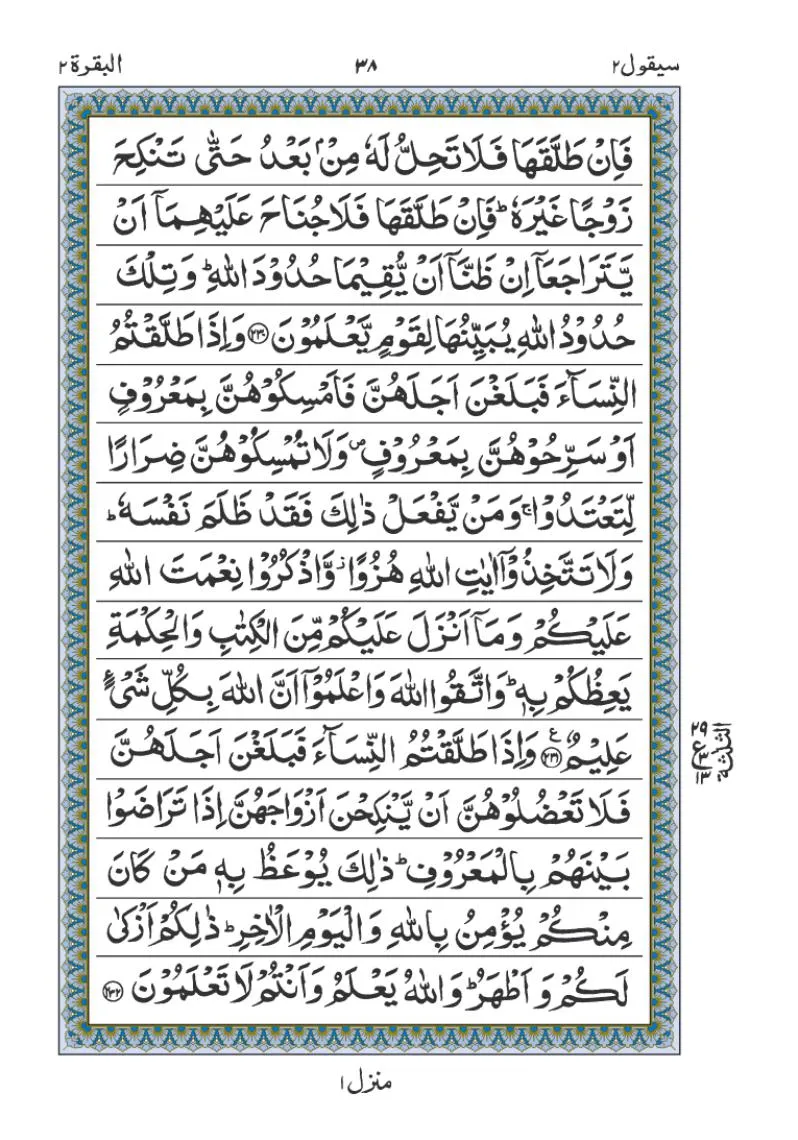 سيقول٢ ٣٨ البقرة٢
فَاِنْ طَلَّقَهَا فَلَا تَحِلُّ لَهٗ مِنْۢ بَعْدُ حَتّٰى تَنْكِحَ
زَوْجًا غَيْرَهٗ ؕ فَاِنْ طَلَّقَهَا فَلَا جُنَاحَ عَلَيْهِمَاۤ اَنْ
يَّتَرَاجَعَاۤ اِنْ ظَنَّاۤ اَنْ يُّقِيْمَا حُدُوْدَ اللّٰهِ ؕ وَ تِلْكَ
حُدُوْدُ اللّٰهِ يُبَيِّنُهَا لِقَوْمٍ يَّعْلَمُوْنَ ﴿۲۳۰﴾ وَ اِذَا طَلَّقْتُمُ
النِّسَآءَ فَبَلَغْنَ اَجَلَهُنَّ فَاَمْسِكُوْهُنَّ بِمَعْرُوْفٍ
اَوْ سَرِّحُوْهُنَّ بِمَعْرُوْفٍ ۪ وَ لَا تُمْسِكُوْهُنَّ ضِرَارًا
لِّتَعْتَدُوْا ۚ وَ مَنْ يَّفْعَلْ ذٰلِكَ فَقَدْ ظَلَمَ نَفْسَهٗ ؕ
وَ لَا تَتَّخِذُوْۤا اٰيٰتِ اللّٰهِ هُزُوًا ؗ وَّ اذْكُرُوْا نِعْمَتَ اللّٰهِ
عَلَيْكُمْ وَ مَاۤ اَنْزَلَ عَلَيْكُمْ مِّنَ الْكِتٰبِ وَ الْحِكْمَةِ
يَعِظُكُمْ بِهٖ ؕ وَ اتَّقُوا اللّٰهَ وَ اعْلَمُوْۤا اَنَّ اللّٰهَ بِكُلِّ شَيْءٍ
عَلِيْمٌ ﴿۲۳۱﴾ ع وَ اِذَا طَلَّقْتُمُ النِّسَآءَ فَبَلَغْنَ اَجَلَهُنَّ
٢٩
ع
١٣
الثلثة
فَلَا تَعْضُلُوْهُنَّ اَنْ يَّنْكِحْنَ اَزْوَاجَهُنَّ اِذَا تَرَاضَوْا
بَيْنَهُمْ بِالْمَعْرُوْفِ ؕ ذٰلِكَ يُوْعَظُ بِهٖ مَنْ كَانَ
مِنْكُمْ يُؤْمِنُ بِاللّٰهِ وَ الْيَوْمِ الْاٰخِرِ ؕ ذٰلِكُمْ اَزْكٰى
لَكُمْ وَ اَطْهَرُ ؕ وَ اللّٰهُ يَعْلَمُ وَ اَنْتُمْ لَا تَعْلَمُوْنَ ﴿۲۳۲﴾
منزل١